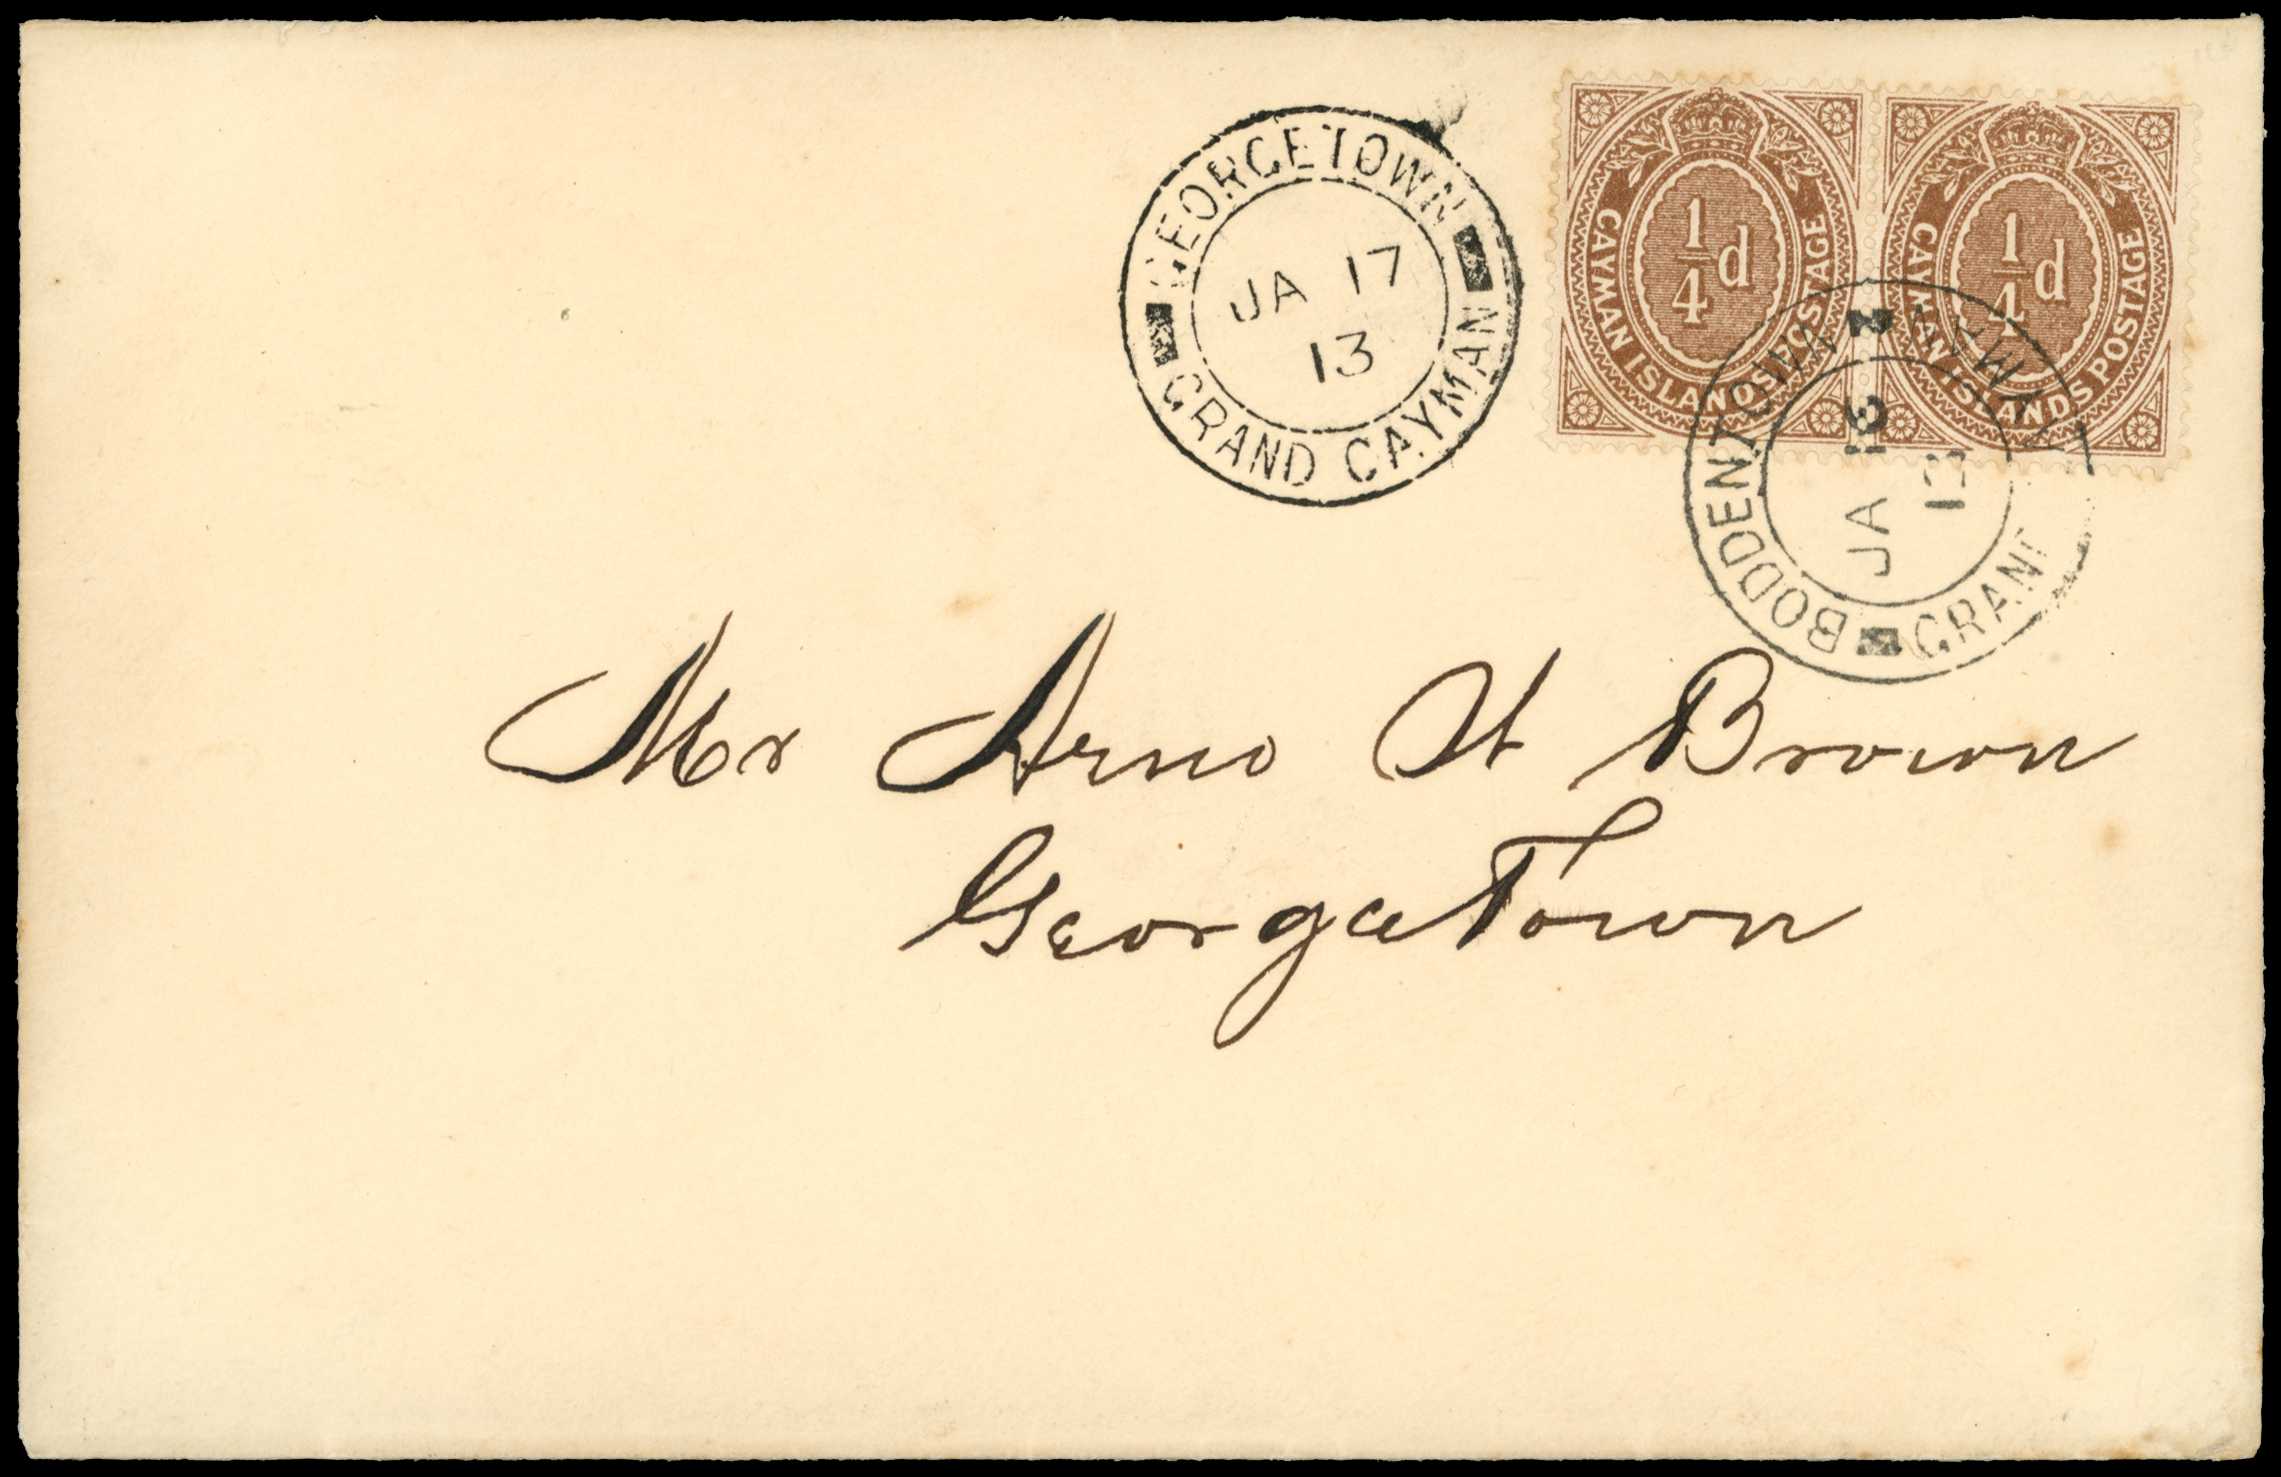 GEORGETOWN
JA 17
13
GRAND CAYMAN
1/4d
CAYMAN ISLANDS POSTAGE
1/4d
CAYMAN ISLANDS POSTAGE
BODDENTOWN
JA
13
GRAND CAYMAN
Mr Arno H Brown
Georgetown